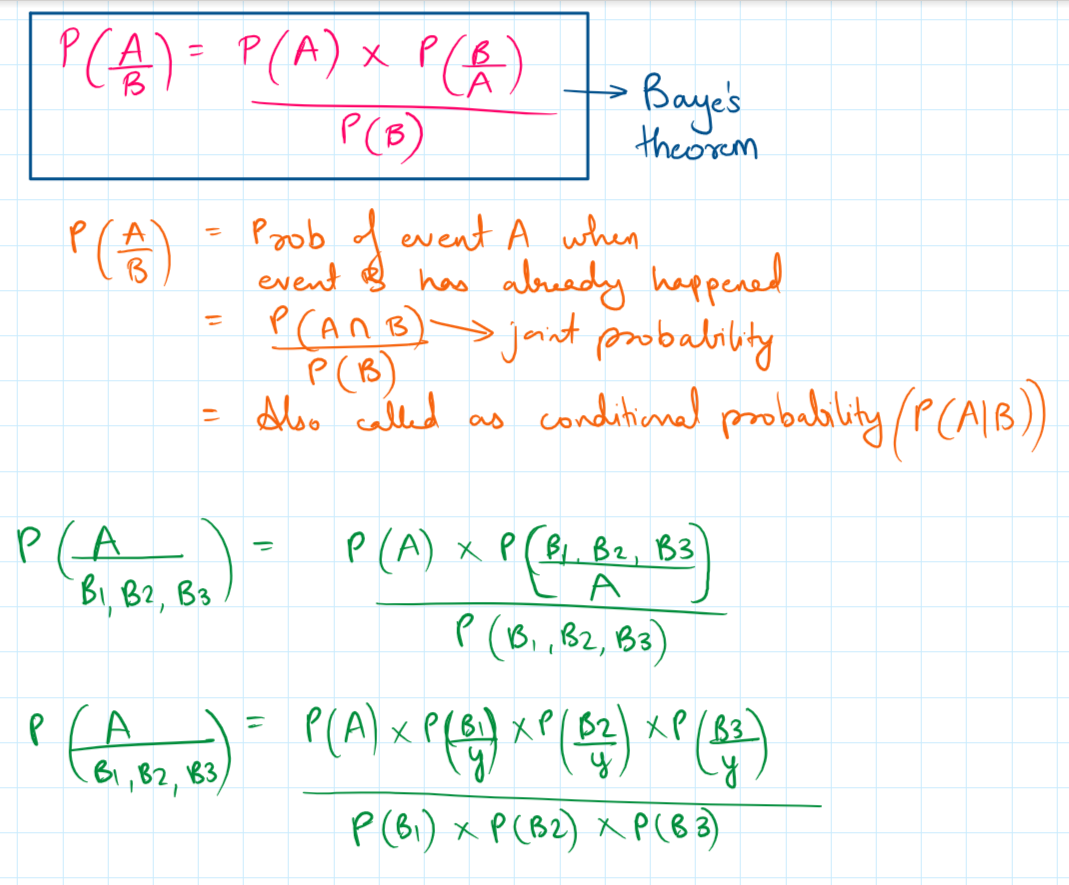 P(A/B) = P(A) × P(B/A) / P(B) → Baye's theorem
P(A/B) = Prob of event A when
event B has already happened
= P(A ∩ B) / P(B) → joint probability
= Also called as conditional probability (P(A|B))
P(A / B1, B2, B3) = P(A) × P(B1, B2, B3 / A) / P(B1, B2, B3)
P(A / B1, B2, B3) = P(A) × P(B1/y) × P(B2/y) × P(B3/y) / P(B1) × P(B2) × P(B3)